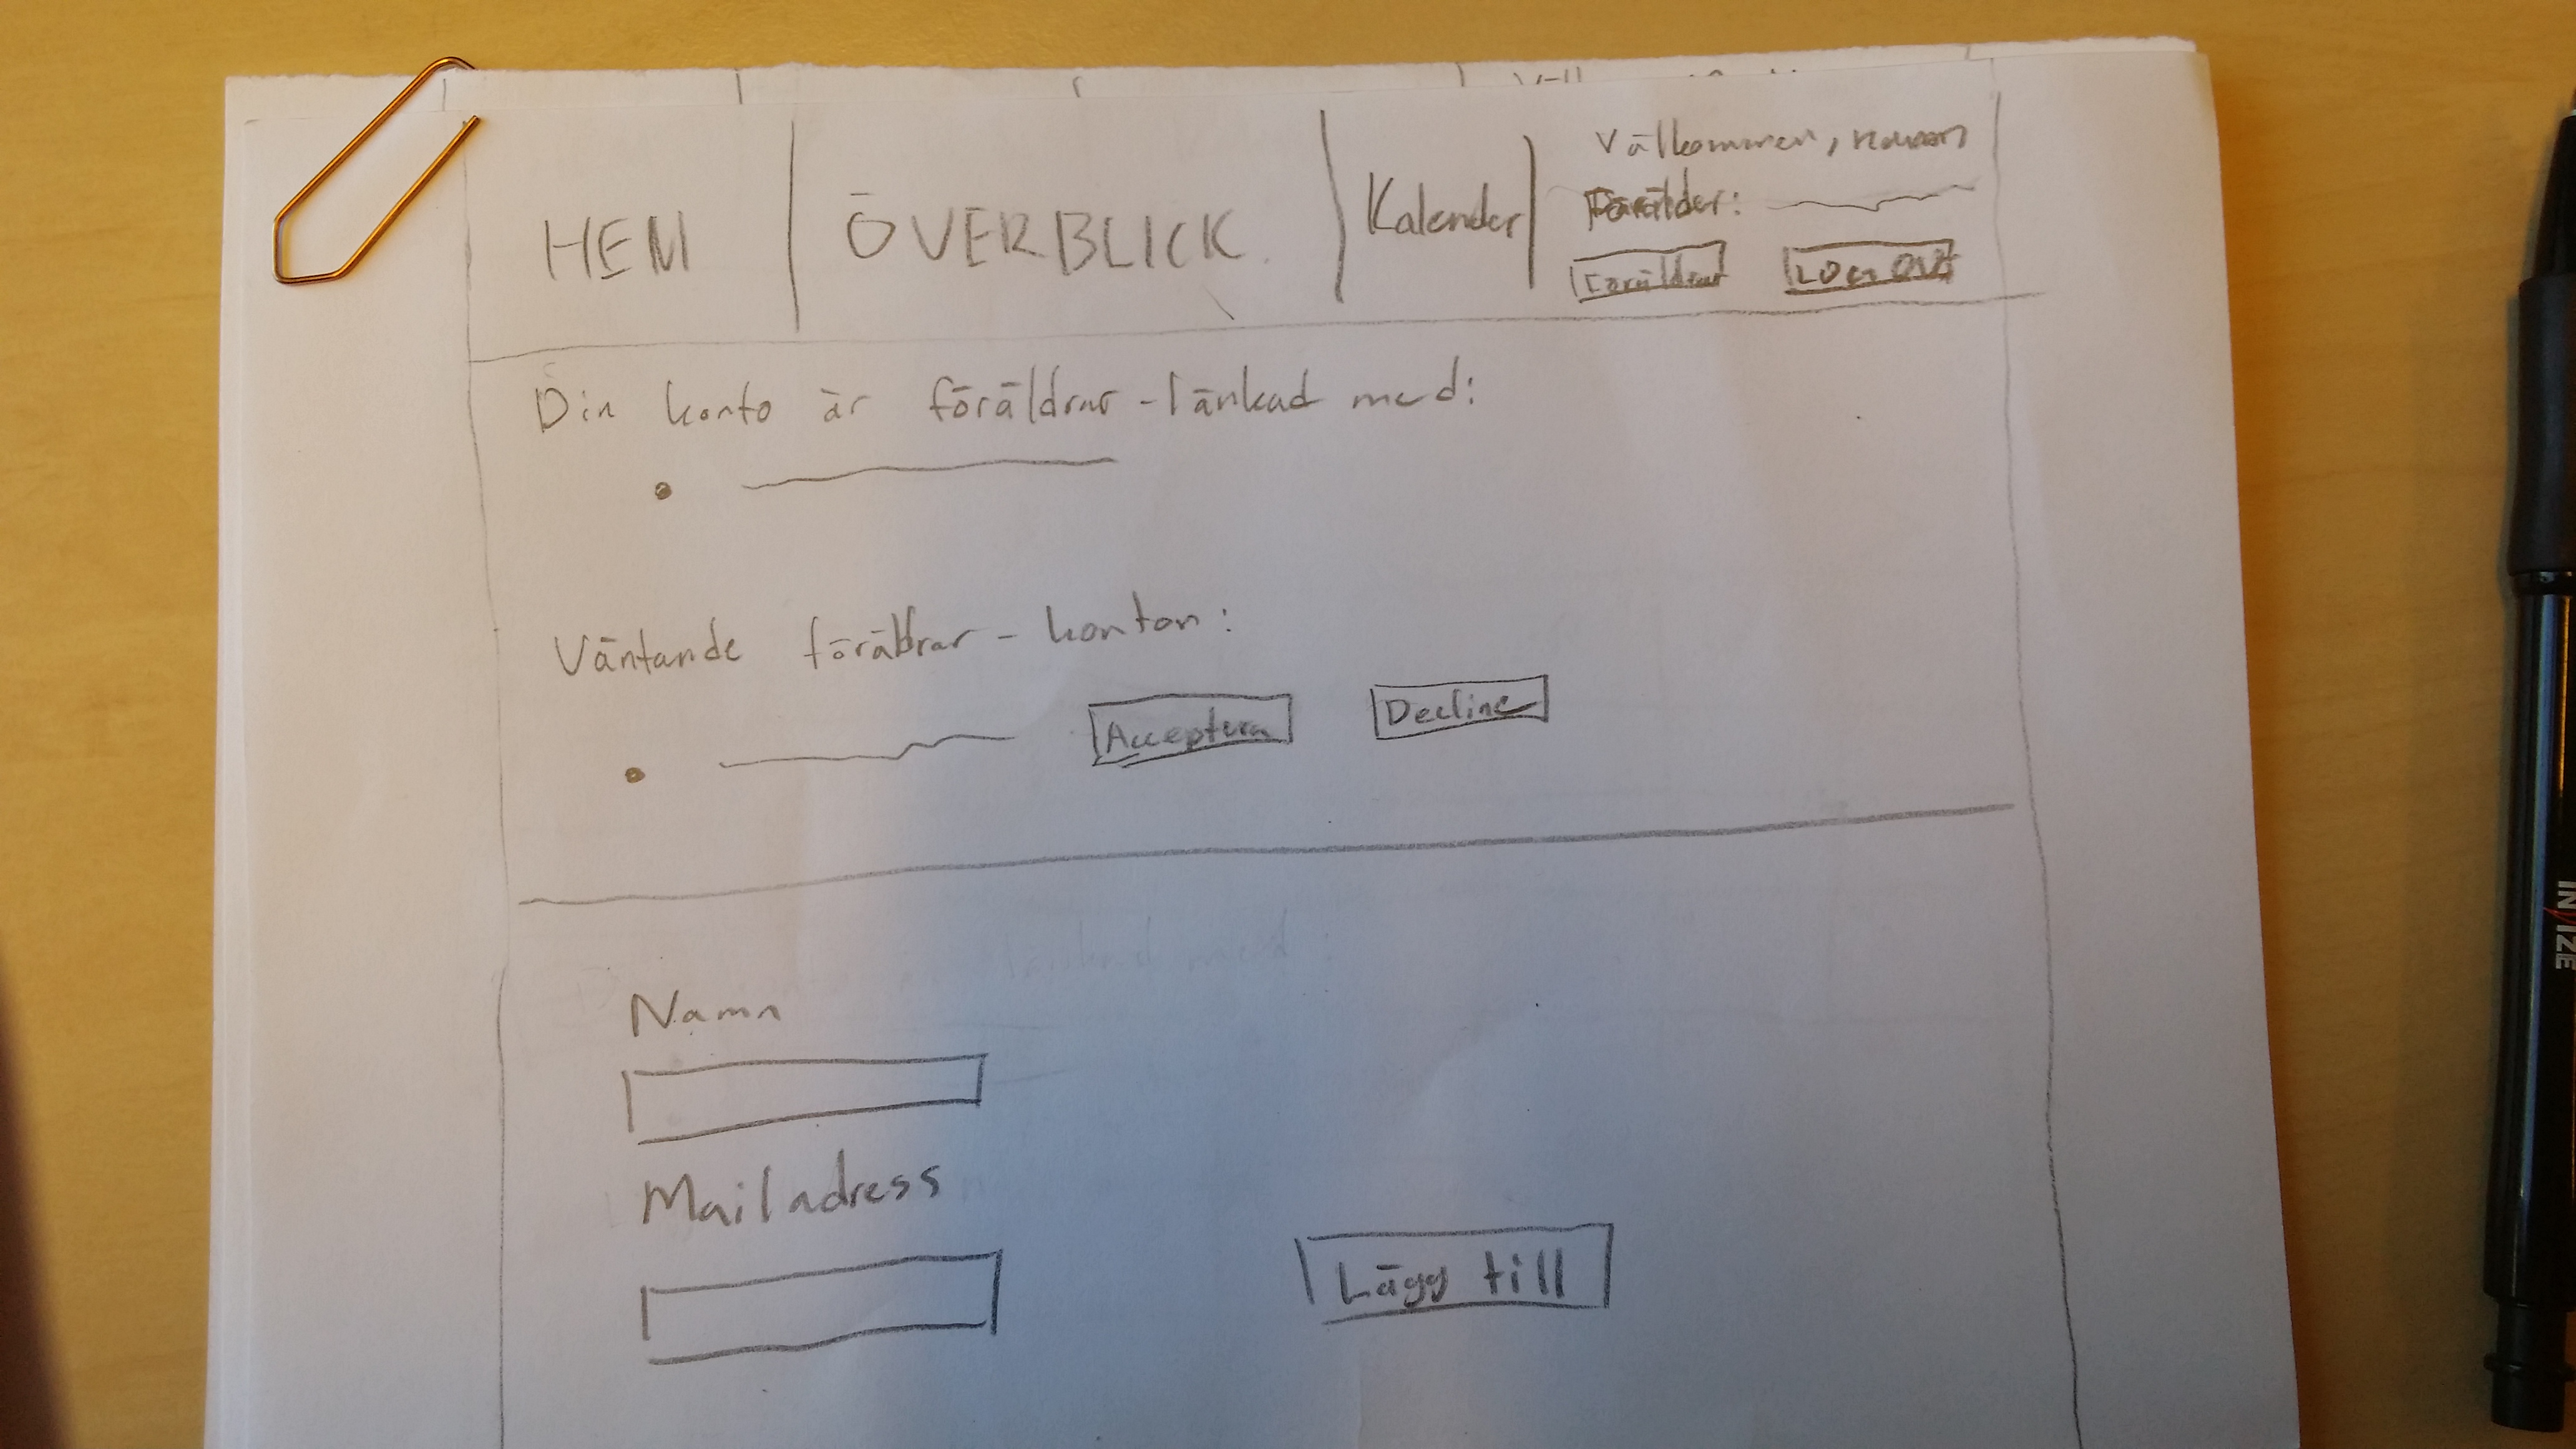 HEM ÖVERBLICK Kalender
Välkommen, namn
Förälder:
Föräldrar LOG OUT
Din konto är föräldrar-länkad med:
Väntande föräldrar-konton:
Acceptera Decline
Namn
Mailadress
Lägg till